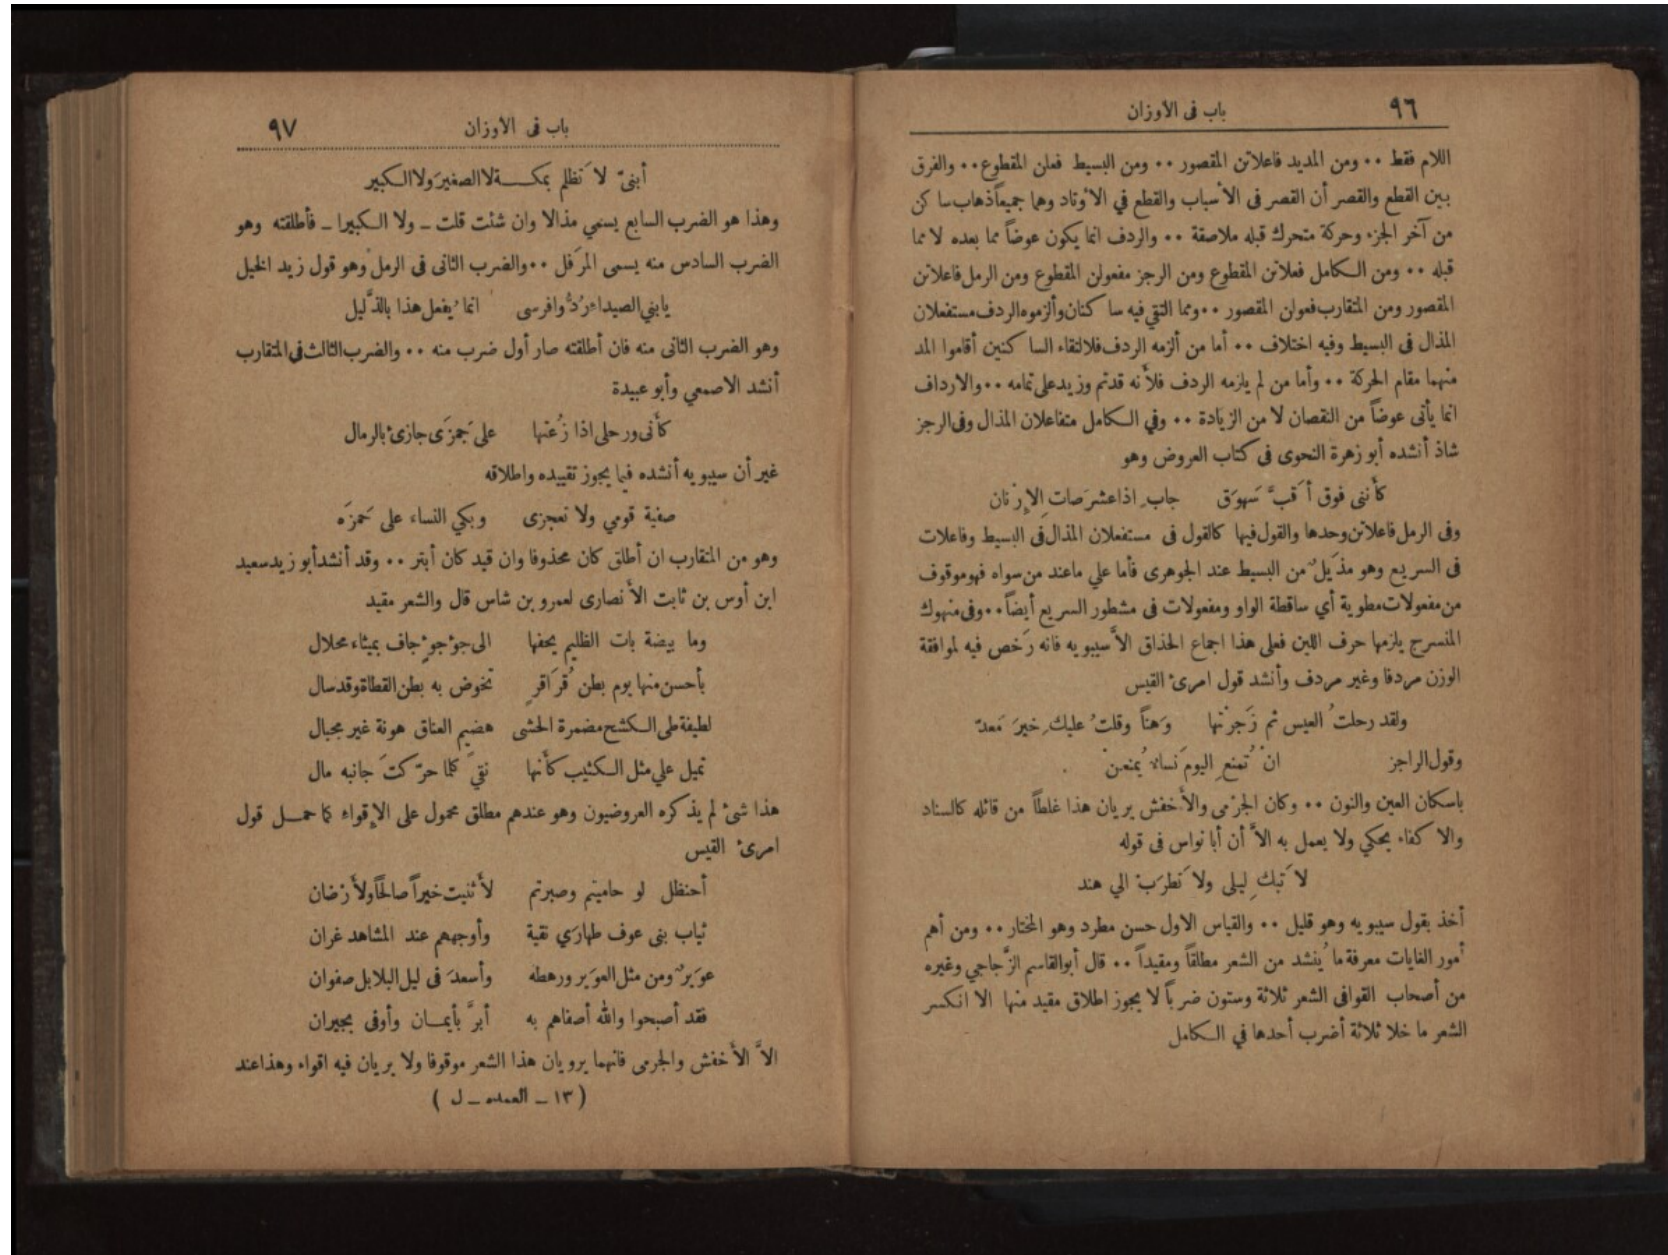 ٩٦ باب فى الأوزان
اللام فقط ٠٠ ومن المديد فاعلاتن المقصور ٠٠ ومن البسيط فعلن المقطوع ٠٠ والفرق
بين القطع والقصر أن القصر فى الأسباب والقطع في الأوتاد وهما جميعاً ذهاب ساكن
من آخر الجزء وحركة متحرك قبله ملاصقة ٠٠ والردف انما يكون عوضاً مما بعده لا مما
قبله ٠٠ ومن الكامل فعلاتن المقطوع ومن الرجز مفعولن المقطوع ومن الرمل فاعلاتن
المقصور ومن المتقارب فعولن المقصور ٠٠ ومما التقي فيه ساكنان وألزموه الردف مستفعلان
المذال فى البسيط وفيه اختلاف ٠٠ أما من ألزمه الردف فلالتقاء الساكنين أقاموا المد
منهما مقام الحركة ٠٠ وأما من لم يلزمه الردف فلأنه قد تم وزيد على تمامه ٠٠ والارداف
انما يأتى عوضاً من النقصان لا من الزيادة ٠٠ وفي الكامل متفاعلان المذال وفى الرجز
شاذ أنشده أبو زهرة النحوى فى كتاب العروض وهو
كأننى فوق أقبَّ سَهوَق جابِ اذا عشر صاتِ الإِرْنان
وفى الرمل فاعلاتن وحدها والقول فيها كالقول فى مستفعلان المذال فى البسيط وفاعلات
فى السريع وهو مذيلٌ من البسيط عند الجوهرى فأما علي ما عند من سواه فهو موقوف
من مفعولات مطوية أي ساقطة الواو ومفعولات فى مشطور السريع أيضاً ٠٠ وفى منهوك
المنسرح يلزمها حرف اللين فعلى هذا اجماع الحذاق الاَّ سيبويه فانه رَخص فيه لموافقة
الوزن مردفا وغير مردف وأنشد قول امرئ القيس
ولقد رحلتُ العيس ثم زَجرْتها وَهناً وقلتُ عليكِ خيرَ مَعدّ
وقول الراجز انْ تُمنعِ اليومَ نساءٌ يُمنعنْ
باسكان العين والنون ٠٠ وكان الجرْمى والأخفش يريان هذا غلطاً من قائله كالسناد
والاكفاء يحكي ولا يعمل به الاَّ أن أبا نواس فى قوله
لا تَبكِ ليلى ولا تَطرَبْ الي هند
أخذ بقول سيبويه وهو قليل ٠٠ والقياس الاول حسن مطرد وهو المختار ٠٠ ومن أهم
أمور الغايات معرفة ما يُنشد من الشعر مطلقاً ومقيداً ٠٠ قال أبوالقاسم الزَّجاجي وغيره
من أصحاب القوافى الشعر ثلاثة وستون ضرباً لا يجوز اطلاق مقيد منها الا انكسر
الشعر ما خلا ثلاثة أضرب أحدها في الكامل
باب فى الاوزان ٩٧
أبنىّ لا تَظلم بمكـــة لا الصغيرَ ولا الكبير
وهذا هو الضرب السابع يسمي مذالا وان شئت قلت ـ ولا الكبيرا ـ فأطلقته وهو
الضرب السادس منه يسمى المرَفل ٠٠ والضرب الثانى فى الرمل وهو قول زيد الخيل
يابني الصيداء رُدُّوا فرسى انما يُفعل هذا بالذَّليل
وهو الضرب الثانى منه فان أطلقته صار أول ضرب منه ٠٠ والضرب الثالث فى المتقارب
أنشد الاصمعي وأبو عبيدة
كأنى ورحلى اذا زُعتها على جَمزَى جازئ بالرمال
غير أن سيبويه أنشده فيما يجوز تقييده واطلاقه
صفية قومي ولا تعجزى وبكي النساء على حَمزَه
وهو من المتقارب ان أطلق كان محذوفا وان قيد كان أبتر ٠٠ وقد أنشد أبو زيد سعيد
ابن أوس بن ثابت الأنصارى لعمرو بن شاس قال والشعر مقيد
وما بيضة بات الظليم يحفها الى جؤجؤٍ جاف بميثاء محلال
بأحسن منها يوم بطن قُرَاقرٍ تخوض به بطن القطاة وقد سال
لطيفة طى الكشح مضمرة الحشى هضيم العناق هونة غير مجبال
تميل علي مثل الكثيب كأنها نقيً كلما حرّكتَ جانبه مال
هذا شئ لم يذكره العروضيون وهو عندهم مطلق محمول على الإقواء كما حمـــل قول
امرئ القيس
أحنظل لو حاميتم وصبرتم لأثنيت خيراً صالحاً ولأرْضان
ثياب بنى عوف طهارَي نقية وأوجههم عند المشاهد غران
عوَيرٌ ومن مثل العوَير ورهطه وأسعدَ فى ليل البلابل صفوان
فقد أصبحوا والله أصفاهم به أبرَّ بأيمــان وأوفى بجيران
الاَّ الأخفش والجرمى فانهما يرويان هذا الشعر موقوفا ولا يريان فيه اقواء وهذا عند
( ١٣ ـ العمده ـ ل )